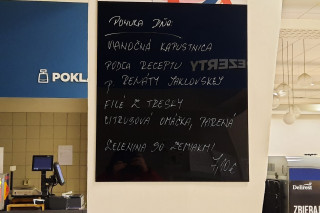 PONUKA DŇA
VIANOČNÁ KAPUSTNICA
PODĽA RECEPTU
P. RENÁTY JAKLOVSKEJ
FILÉ Z TRESKY
CITRUSOVÁ OMÁČKA, PARENÁ
ZELENINA SO ZEMIAKMI
DEZERTY
POKL
DeBrest
ZBIERA